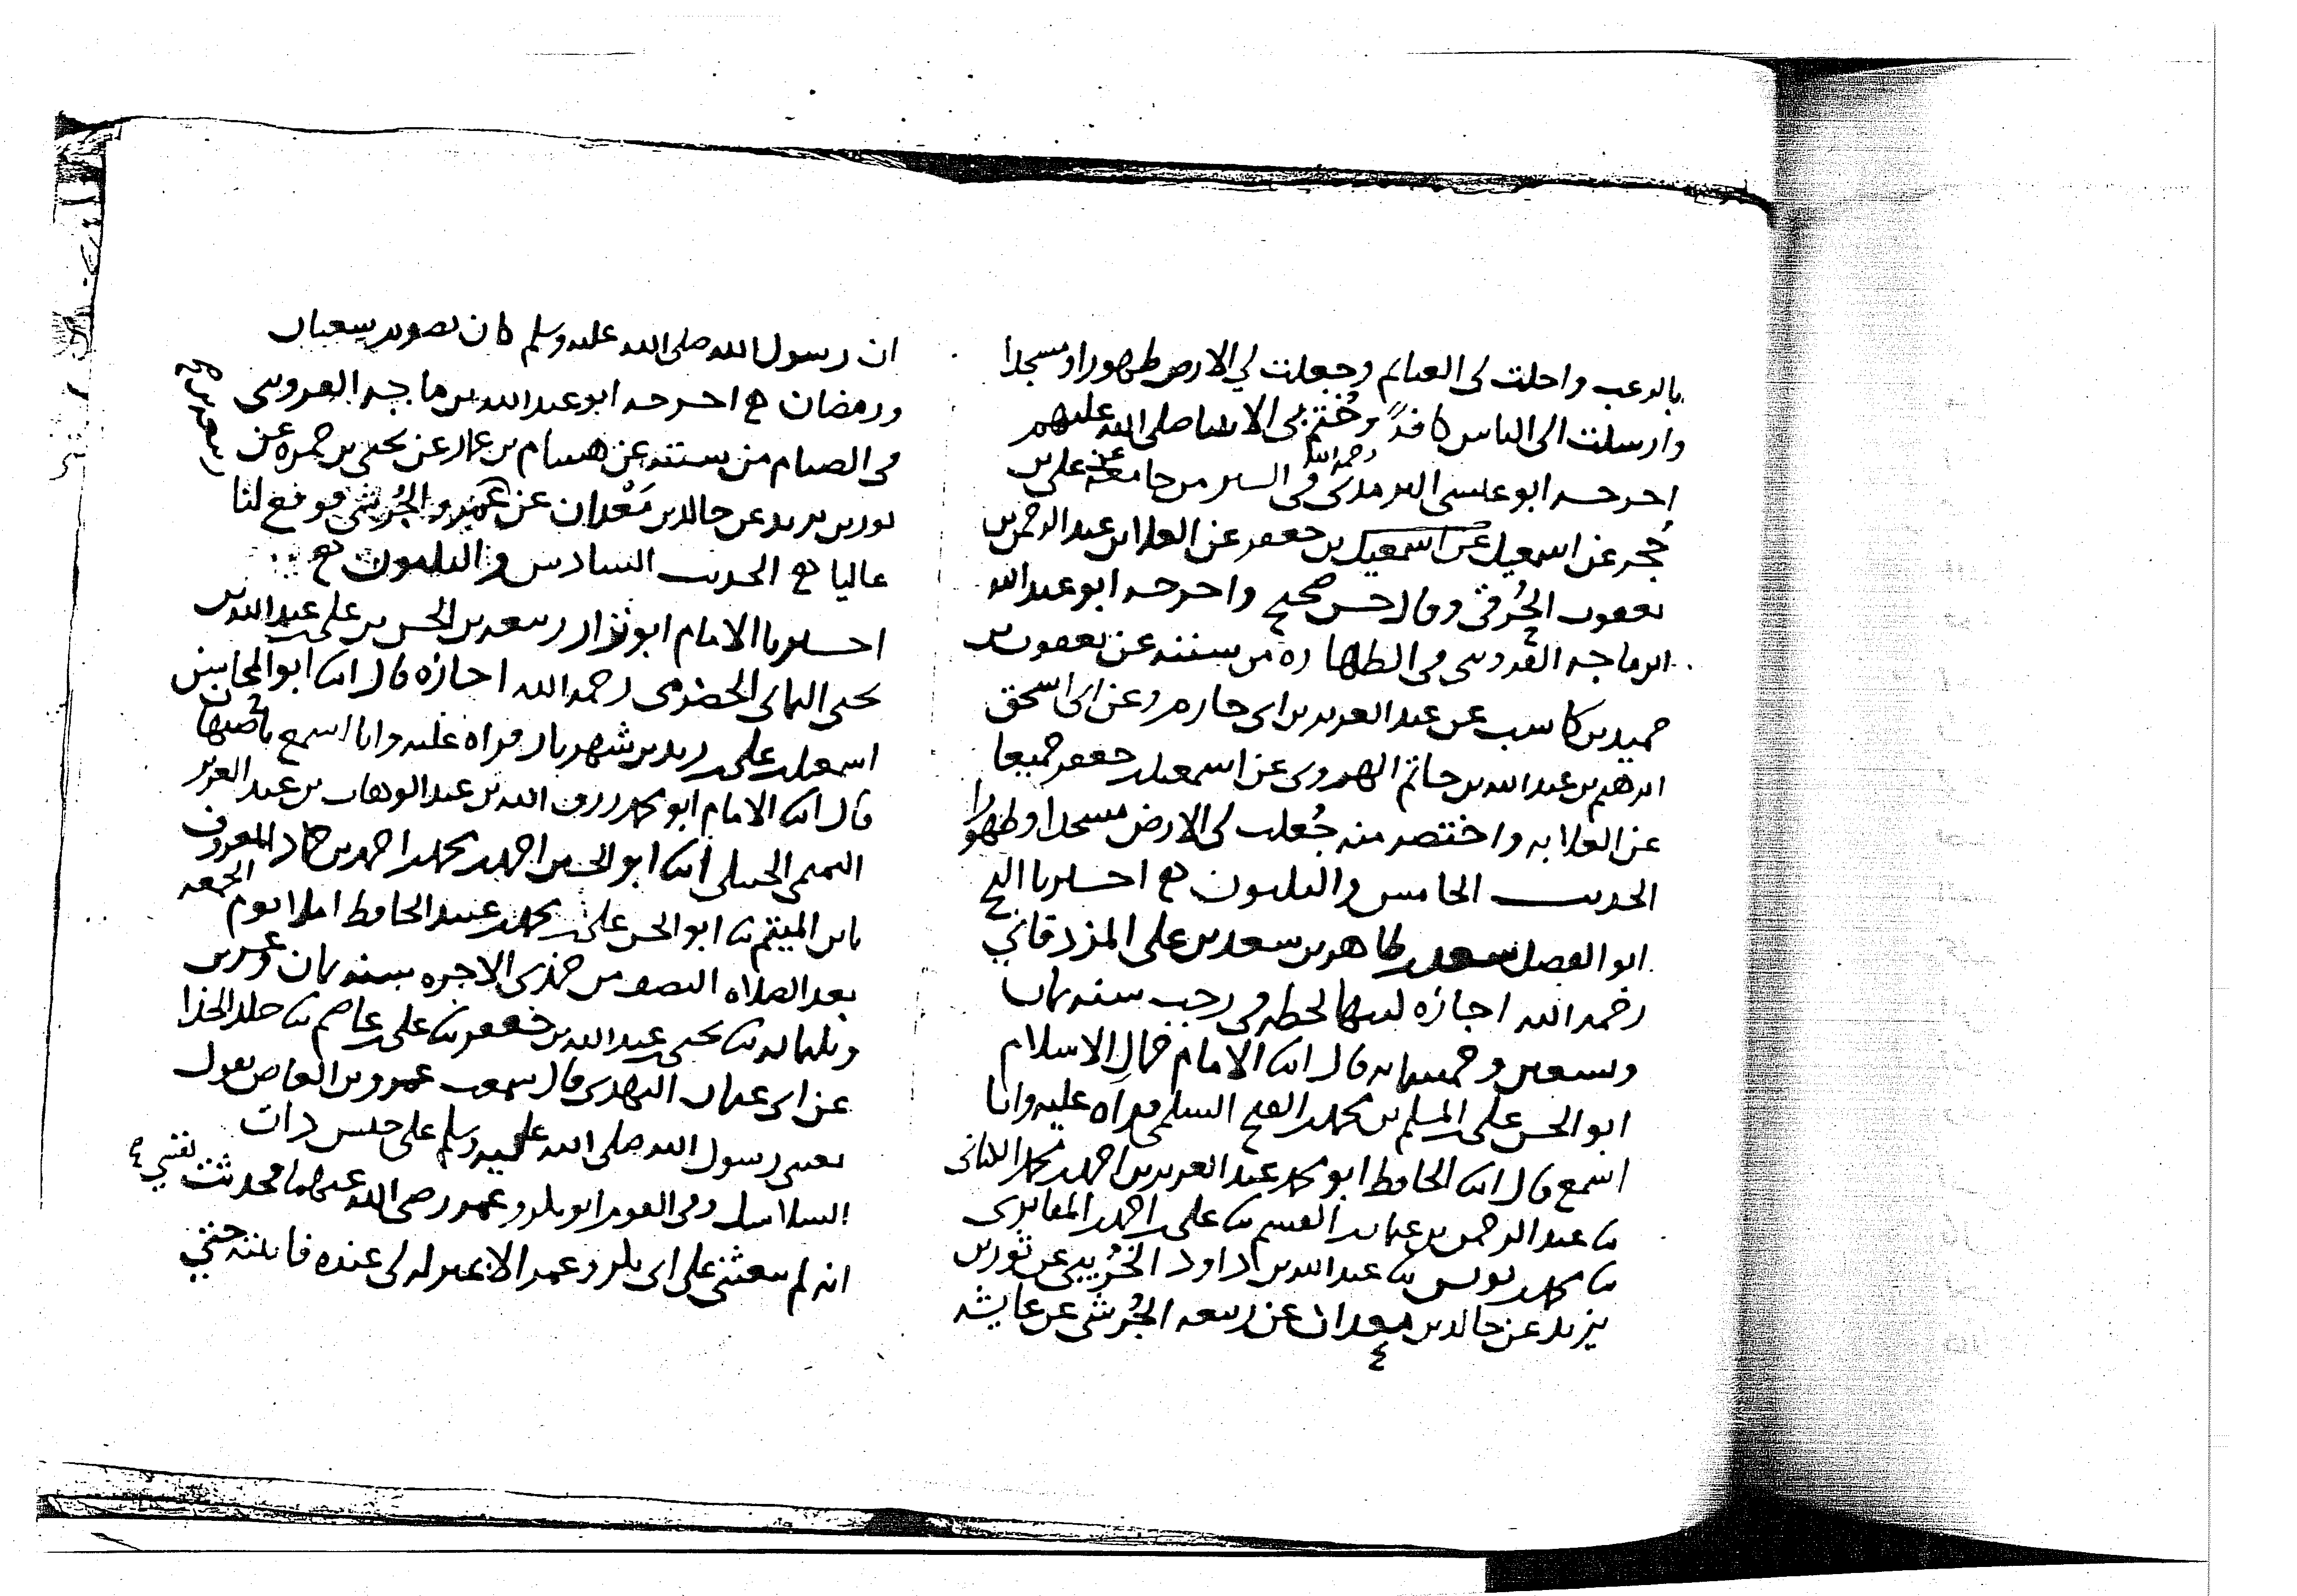 بالرعب واحلت لى الغنائم وجعلت لي الارض طهورا ومسجدا
وارسلت الى الناس كافة وخُتم بي الانبيا صلى الله عليهم
اخرجه ابو عيسى الترمذى رحمه الله فى السير من جامعه عن على بن
حُجر عن اسمعيل بن جعفر عن العلا بن عبد الرحمن بن
يعقوب الحُرقي وقال حسن صحيح واخرجه ابو عبد الله
ابن ماجه القزوينى فى الطهارة من سننه عن يعقوب بن
حميد بن كاسب عن عبد العزيز بن ابى حازم وعن ابى اسحق
ابرهيم بن عبد الله بن حاتم الهروى عن اسمعيل بن جعفر جميعا
عن العلا به واختصر منه جُعلت لى الارض مسجدا وطهورا
الحديث الخامس والثلثون اخبرنا الشيخ
ابو الفضل سعد بن طاهر بن سعد بن على المزدقاني
رحمه الله اجازة كتبها بخطه فى رجب سنة ثمان
وسبعين وخمسمايه قال انا الامام جمال الاسلام
ابو الحسن على بن المسلم بن محمد بن الفتح السلمى قراة عليه وانا
اسمع قال انا الحافظ ابو محمد عبد العزيز بن احمد بن محمد الكتانى
نا عبد الرحمن بن عثمان بن القسم نا على بن احمد المقابرى
نا محمد بن يونس نا عبد الله بن داود الخُريبى عن ثور بن
يزيد عن خالد بن معدان عن ربيعه الجُرشى عن عايشه
ان رسول الله صلى الله عليه وسلم كان يصوم شعبان
ورمضان اخرجه ابو عبد الله بن ماجه القزوينى
فى الصيام من سننه عن هشام بن عمار عن يحيى بن حمزه عن
ثور بن يزيد عن خالد بن مَعْدان عن الجُرشي فوقع لنا
عاليا الحديث السادس والثلثون
اخبرنا الامام ابو نزار ربيعه بن الحسن بن على بن عبد الله بن
يحيى اليمانى الحضرمى رحمه الله اجازه قال انا ابو المحاسن
اسمعيل بن على بن زيد بن شهريار قراة عليه وانا اسمع باصبهان
قال انا الامام ابو محمد رزق الله بن عبد الوهاب بن عبد العزيز
التميمى الحنبلى انا ابو الحسين احمد بن محمد بن احمد بن حماد المعروف
بابن المتيم نا ابو الحسن على بن محمد بن عبيد الحافظ املا يوم الجمعه
بعد الصلاه النصف من جمدى الاخره سنه ثمان وعشرين
وثلثمايه نا يحيى بن عبد الله بن جعفر نا على بن عاصم نا خلد الحذا
عن ابى عثمان النهدى قال سمعت عمرو بن العاص يقول
بعثنى رسول الله صلى الله عليه وسلم على جيش ذات
السلاسل وفى القوم ابو بكر وعمر رضى الله عنهما فحدثت نفسي
انه لم يبعثني على ابى بكر وعمر الا لمنزله لى عنده فاتيته حتي